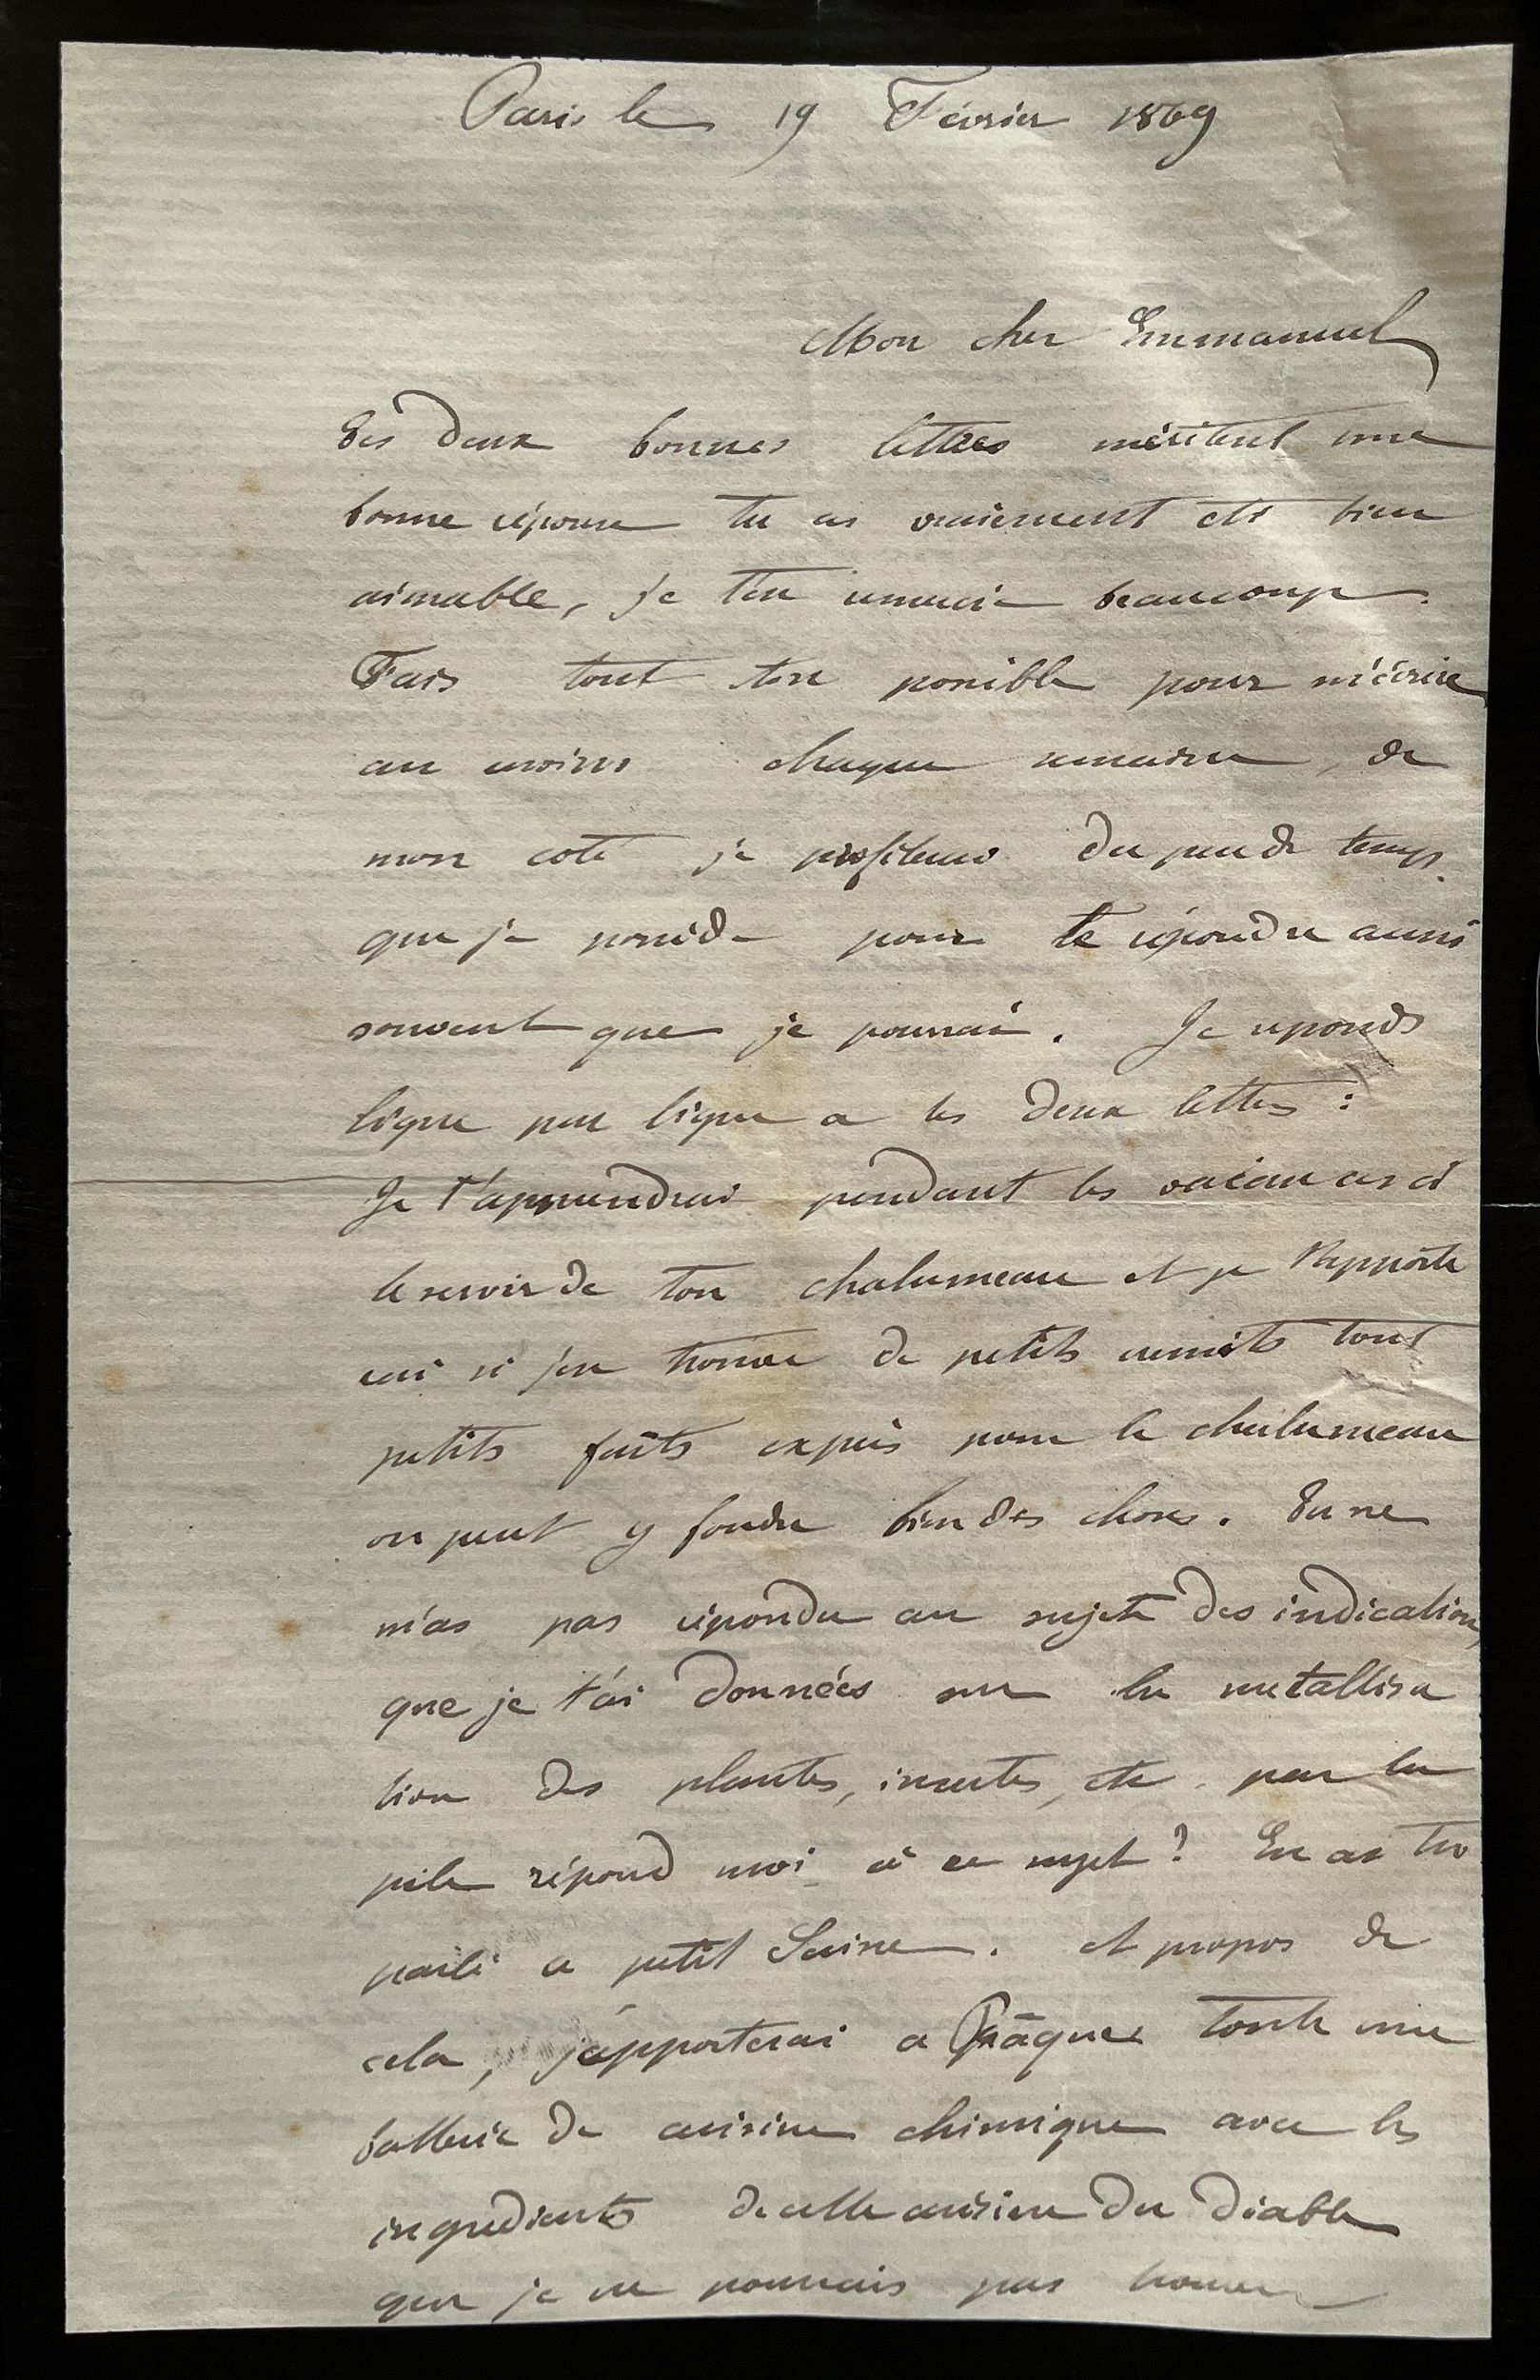 Paris le 19 Février 1869
Mon cher Emmanuel
Tes deux bonnes lettres méritent une
bonne réponse tu as vraiement été bien
aimable, je t'en remercie beaucoup.
Fais tout ton possible pour m'écrire
au moins chaque semaine, de
mon coté je profiterai du peu de temps
que je possède pour te répondre aussi
souvent que je pourrai. Je réponds
ligne par ligne a tes deux lettres :
Je t'apprendrai pendant les vacances à
te servir de ton chalumeau et je t'apporte
rai si j'en trouve de petits creusets tout
petits faits exprès pour le chalumeau
on peut y fondre bien des choses. Tu ne
m'as pas répondu au sujet des indications
que je t'ai données sur la metallisa
tion des plantes, insectes, etc. par la
pile répond moi à ce sujet ? En as tu
parlé a petit . et propos de
cela, j'apporterai a Pâques toute une
batterie de cuisine chimique avec les
ingrédients de cette cuisine du diable
que je ne pourrais pas trouver